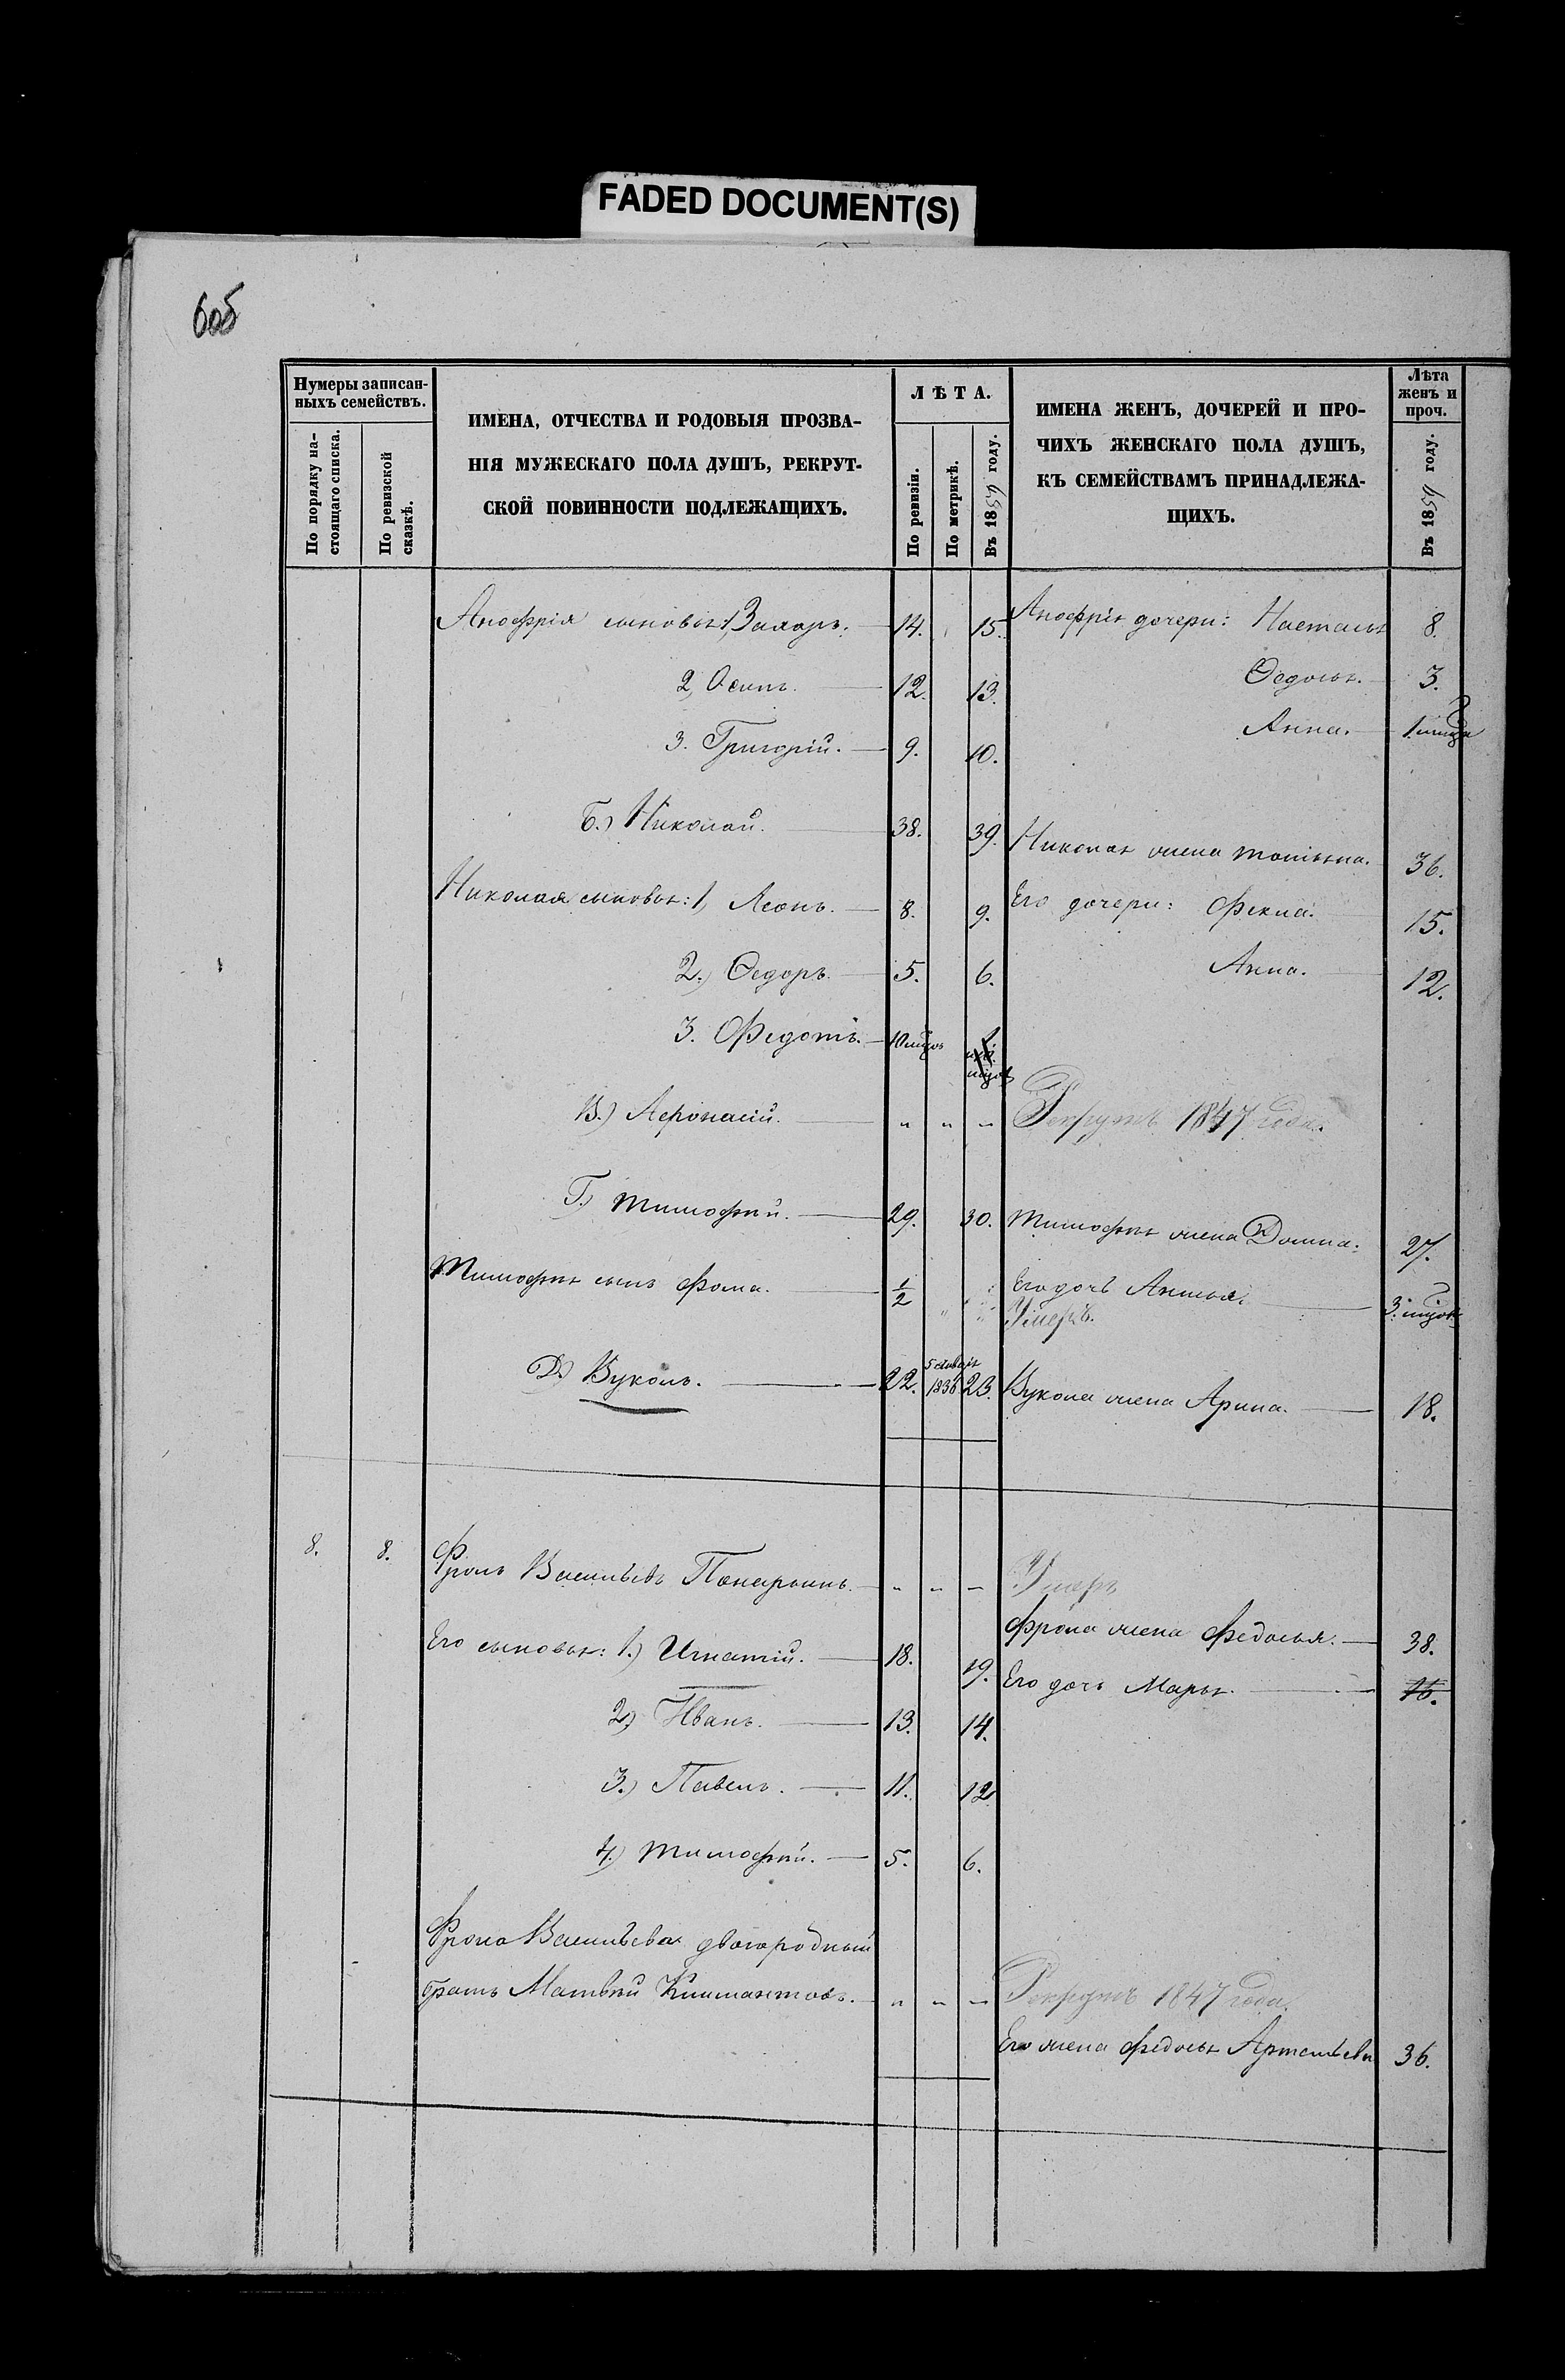 FADED DOCUMENT(S)
60об
Нумеры записан-
ныхъ семействъ.
По порядку на-
стоящаго списка.
По ревизской
сказкѣ.
ИМЕНА, ОТЧЕСТВА И РОДОВЫЯ ПРОЗВА-
НІЯ МУЖЕСКАГО ПОЛА ДУШЪ, РЕКРУТ-
СКОЙ ПОВИННОСТИ ПОДЛЕЖАЩИХЪ.
ЛѢТА.
По ревизіи.
По метрикѣ.
Въ 1859 году.
ИМЕНА ЖЕНЪ, ДОЧЕРЕЙ И ПРО-
ЧИХЪ ЖЕНСКАГО ПОЛА ДУШЪ,
КЪ СЕМЕЙСТВАМЪ ПРИНАДЛЕЖА-
ЩИХЪ.
Лѣта
женъ и
проч.
Въ 1859 году.
Анофрія сыновья: 1, Захаръ. 14. 15. Анофрія дочери: Настасья 8.
2, Осипъ. 12. 13. Ѳедосья. 3.
3. Григорій. 9. 10. Анна. 1
Б.) Николай. 38. 39. Николая жена Татьяна. 36.
Николая сыновья: 1, Леонъ. 8. 9. Его дочери: Фекла. 15.
2.) Ѳедоръ. 5. 6. Анна. 12.
3. Федотъ. 10
В.) Афонасій. " " " Рекрутъ 1847 года.
Г.) Тимофѣй. 29. 30. Тимофѣя жена Домна. 27.
Тимофѣя сынъ Фома. 1/2 " " Его дочь 3.
Умеръ.
Д.) Вуколъ. 22. 5 1836 23. Вукола жена Арина. 18.
8. 8. Фролъ Васильевъ " " " Умеръ
Фрола жена Федосья. 38.
Его сыновья: 1.) Игнатій. 18. 19. Его дочь Марья. 16.
2.) Иванъ. 13. 14.
3.) Павелъ. 11. 12
4.) Тимофѣй. 5. 6.
Фрола Васильева двоюродный
братъ Матвѣй " " " Рекрутъ 1847 года.
Его жена Федосья Артемьева 36.